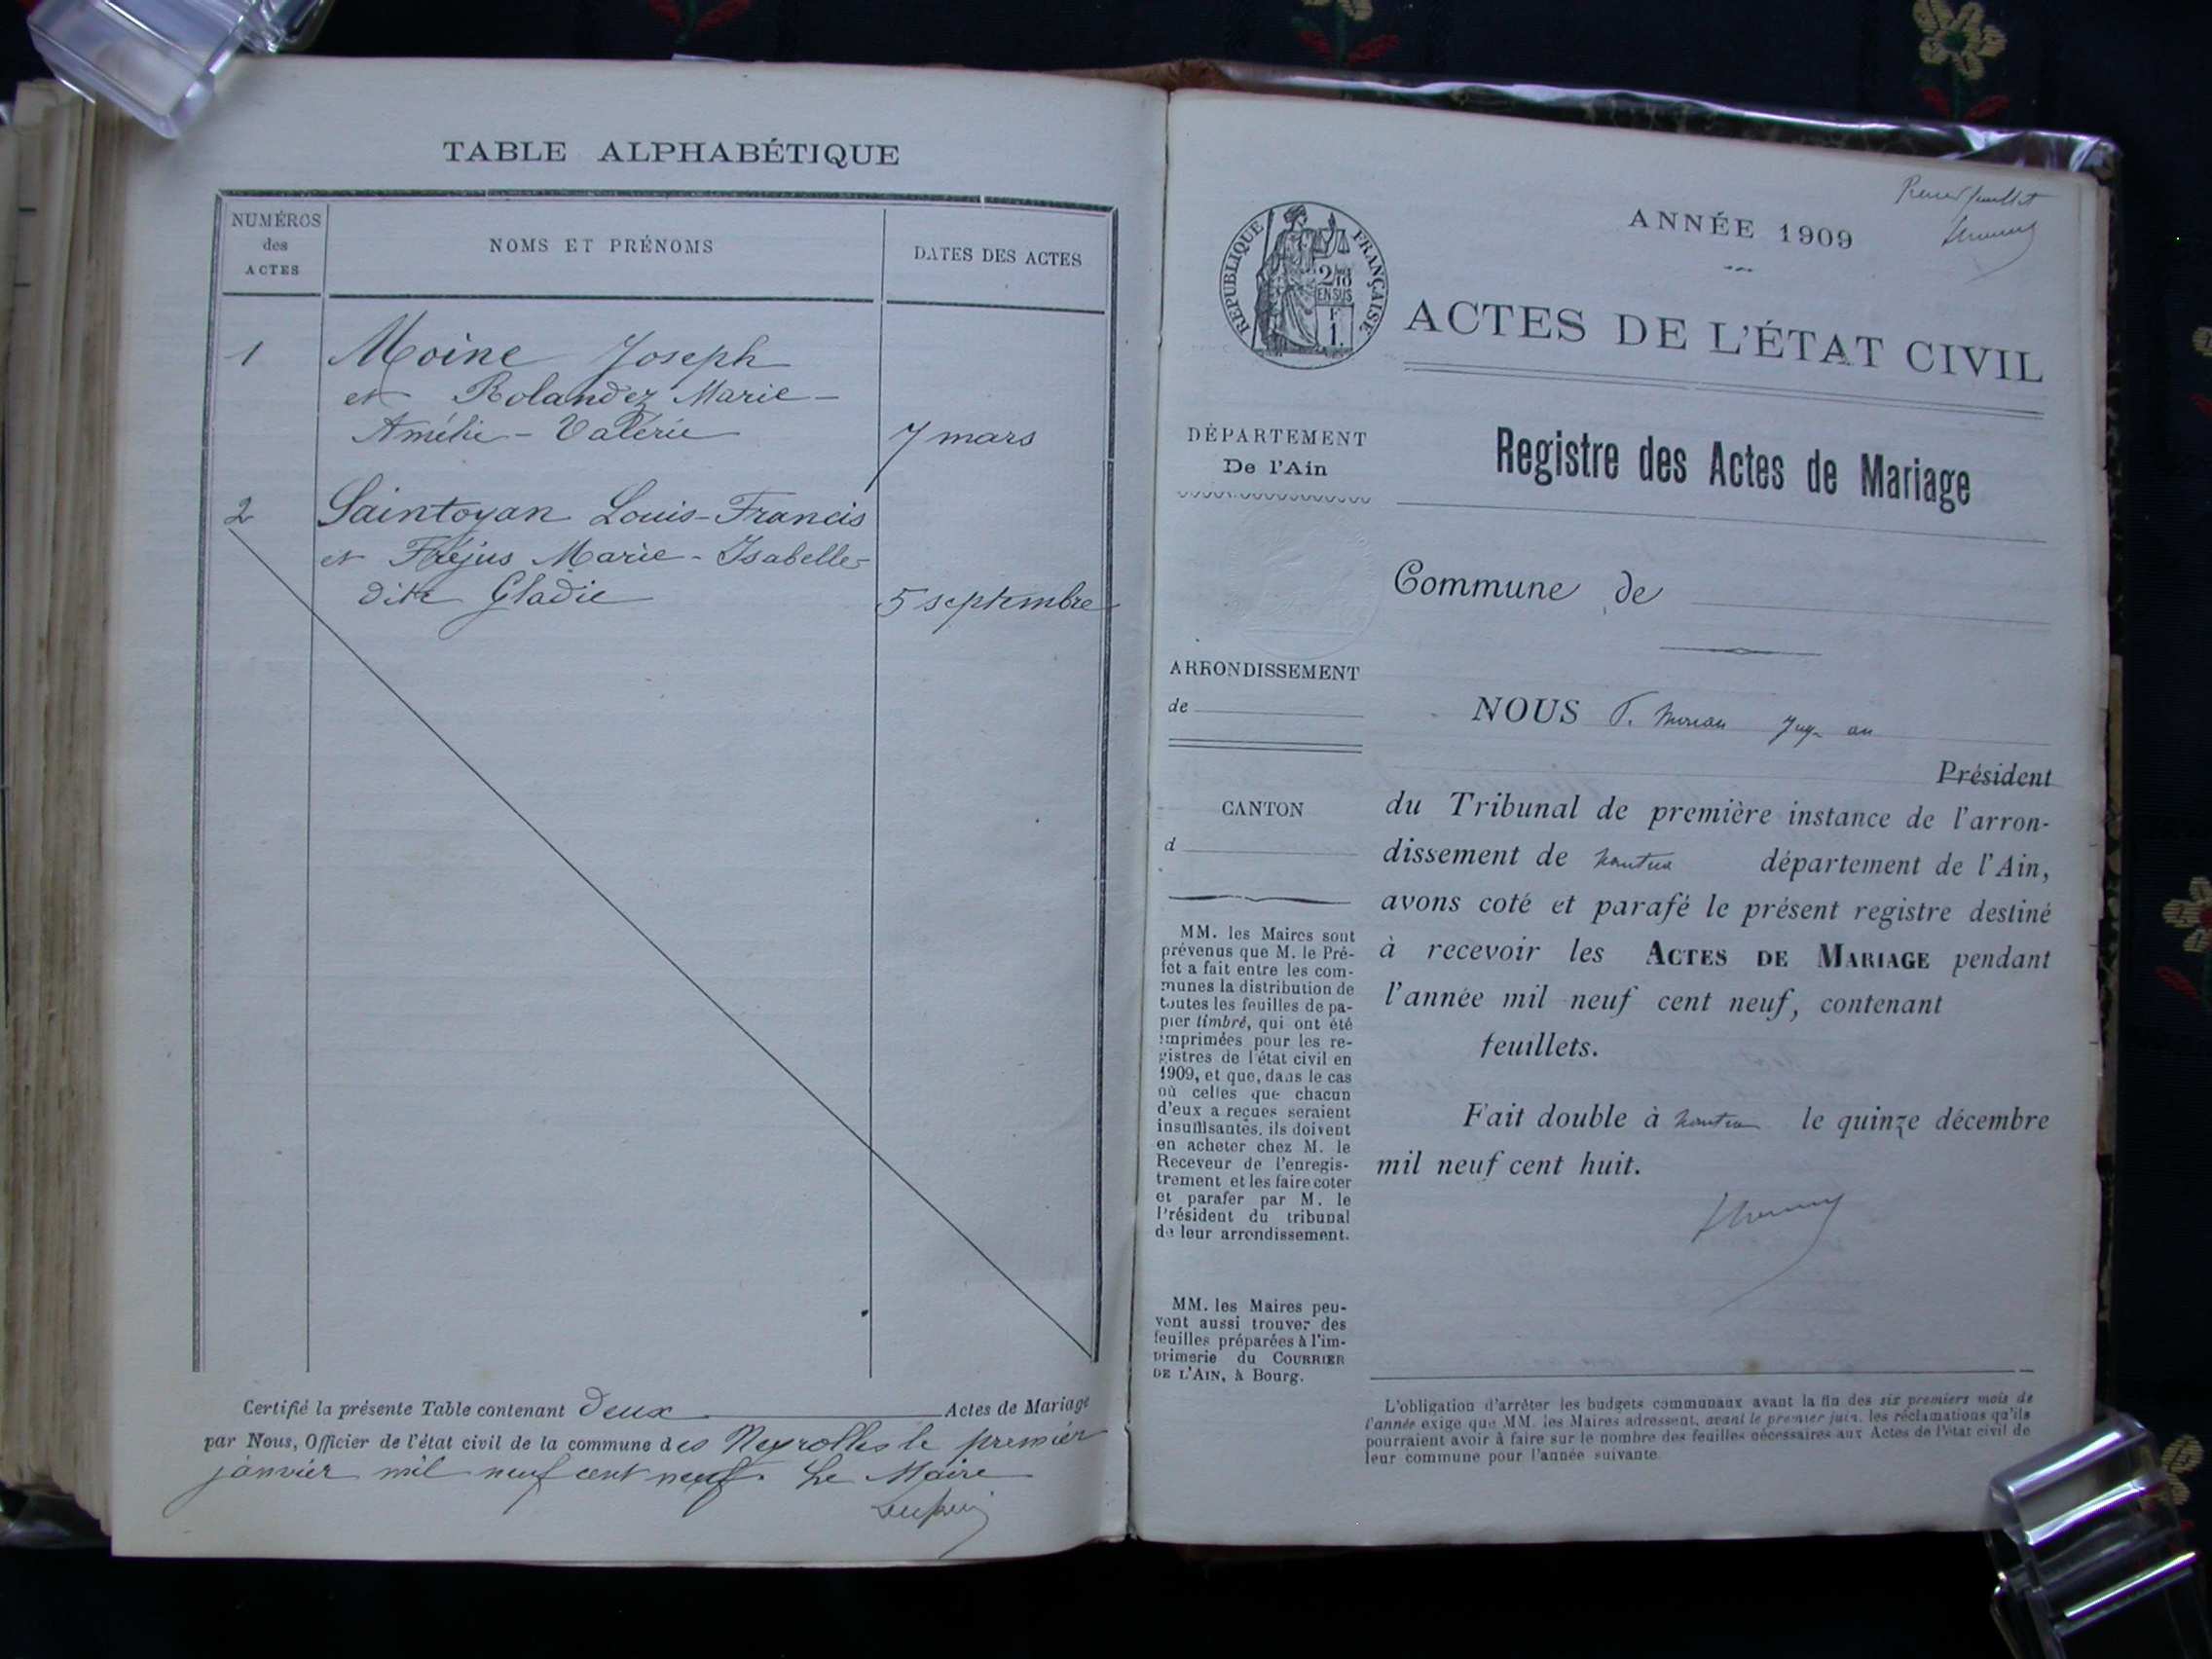 TABLE ALPHABÉTIQUE
NUMÉROS
des
ACTES
NOMS ET PRÉNOMS
DATES DES ACTES
1
Moine Joseph
et Rolandez Marie-
Amélie-Valérie
7 mars
2
Saintoyan Louis-Francis
et Fréjus Marie-Isabelle-
dite Gladie
5 septembre
Certifié la présente Table contenant deux Actes de Mariage
par Nous, Officier de l'état civil de la commune des Neyrolles le premier
janvier mil neuf cent neuf. Le Maire
ANNÉE 1909
RÉPUBLIQUE FRANÇAISE
ACTES DE L'ÉTAT CIVIL
DÉPARTEMENT
De l'Ain
Registre des Actes de Mariage
Commune de
ARRONDISSEMENT
de
NOUS
Président
CANTON
d
du Tribunal de première instance de l'arron-
dissement de Nantua département de l'Ain,
avons coté et parafé le présent registre destiné
à recevoir les ACTES DE MARIAGE pendant
l'année mil neuf cent neuf, contenant
feuillets.
Fait double à Nantua le quinze décembre
mil neuf cent huit.
MM. les Maires sont
prévenus que M. le Pré-
fet a fait entre les com-
munes la distribution de
toutes les feuilles de pa-
pier timbré, qui ont été
imprimées pour les re-
gistres de l'état civil en
1909, et que, dans le cas
où celles que chacun
d'eux a reçues seraient
insuffisantes, ils doivent
en acheter chez M. le
Receveur de l'enregis-
trement et les faire coter
et parafer par M. le
Président du tribunal
de leur arrondissement.
MM. les Maires peu-
vent aussi trouver des
feuilles préparées à l'im-
primerie du COURRIER
DE L'AIN, à Bourg.
L'obligation d'arrêter les budgets communaux avant la fin des six premiers mois de
l'année exige que MM. les Maires adressent, avant le premier juin, les réclamations qu'ils
pourraient avoir à faire sur le nombre des feuilles nécessaires aux Actes de l'état civil de
leur commune pour l'année suivante.